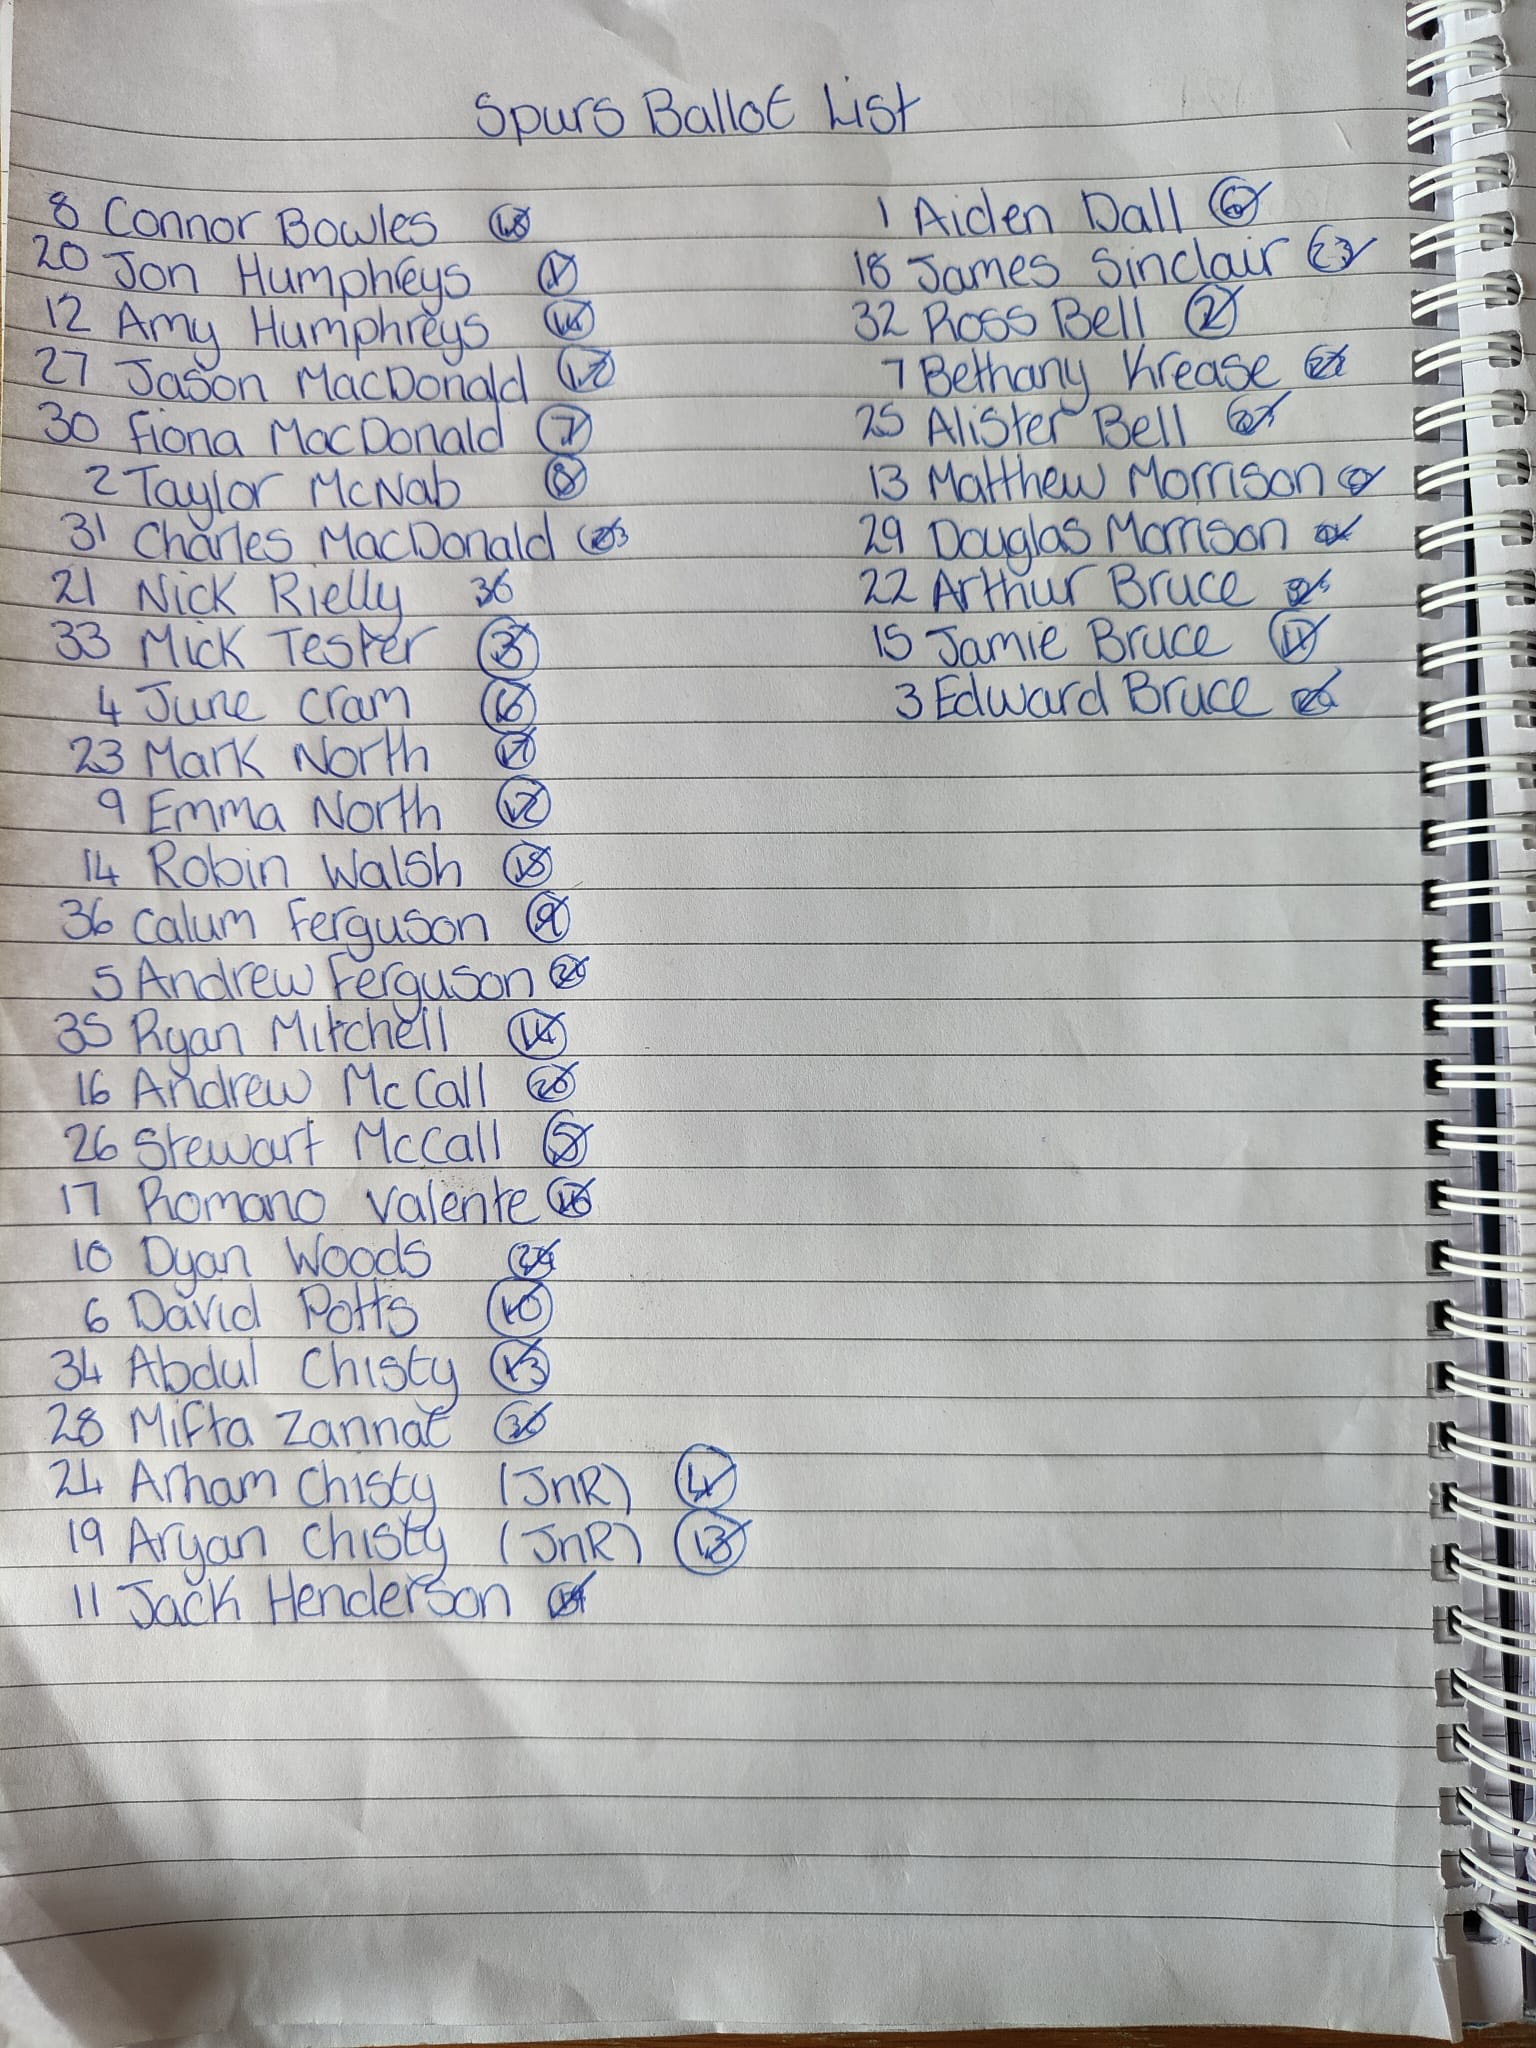 Spurs Ballot List
8 Connor Bowles
20 Jon Humphreys
12 Amy Humphreys
27 Jason MacDonald 17
30 Fiona MacDonald 7
2 Taylor McNab 8
31 Charles MacDonald
21 Nick Rielly 36
33 Mick Tester 3
4 June Cram
23 Mark North
9 Emma North 12
14 Robin Walsh
36 Calum Ferguson 9
5 Andrew Ferguson
35 Ryan Mitchell 14
16 Andrew McCall
26 Stewart McCall 5
17 Romano Valente
10 Dyan Woods
6 David Potts 10
34 Abdul Chisty 13
28 Mifta Zannat
24 Arham Chisty (JnR) 4
19 Aryan Chisty (JnR) 13
11 Jack Henderson
1 Aiden Dall
18 James Sinclair
32 Ross Bell 2
7 Bethany Krease
25 Alister Bell
13 Matthew Morrison
29 Douglas Morrison
22 Arthur Bruce
15 Jamie Bruce 11
3 Edward Bruce